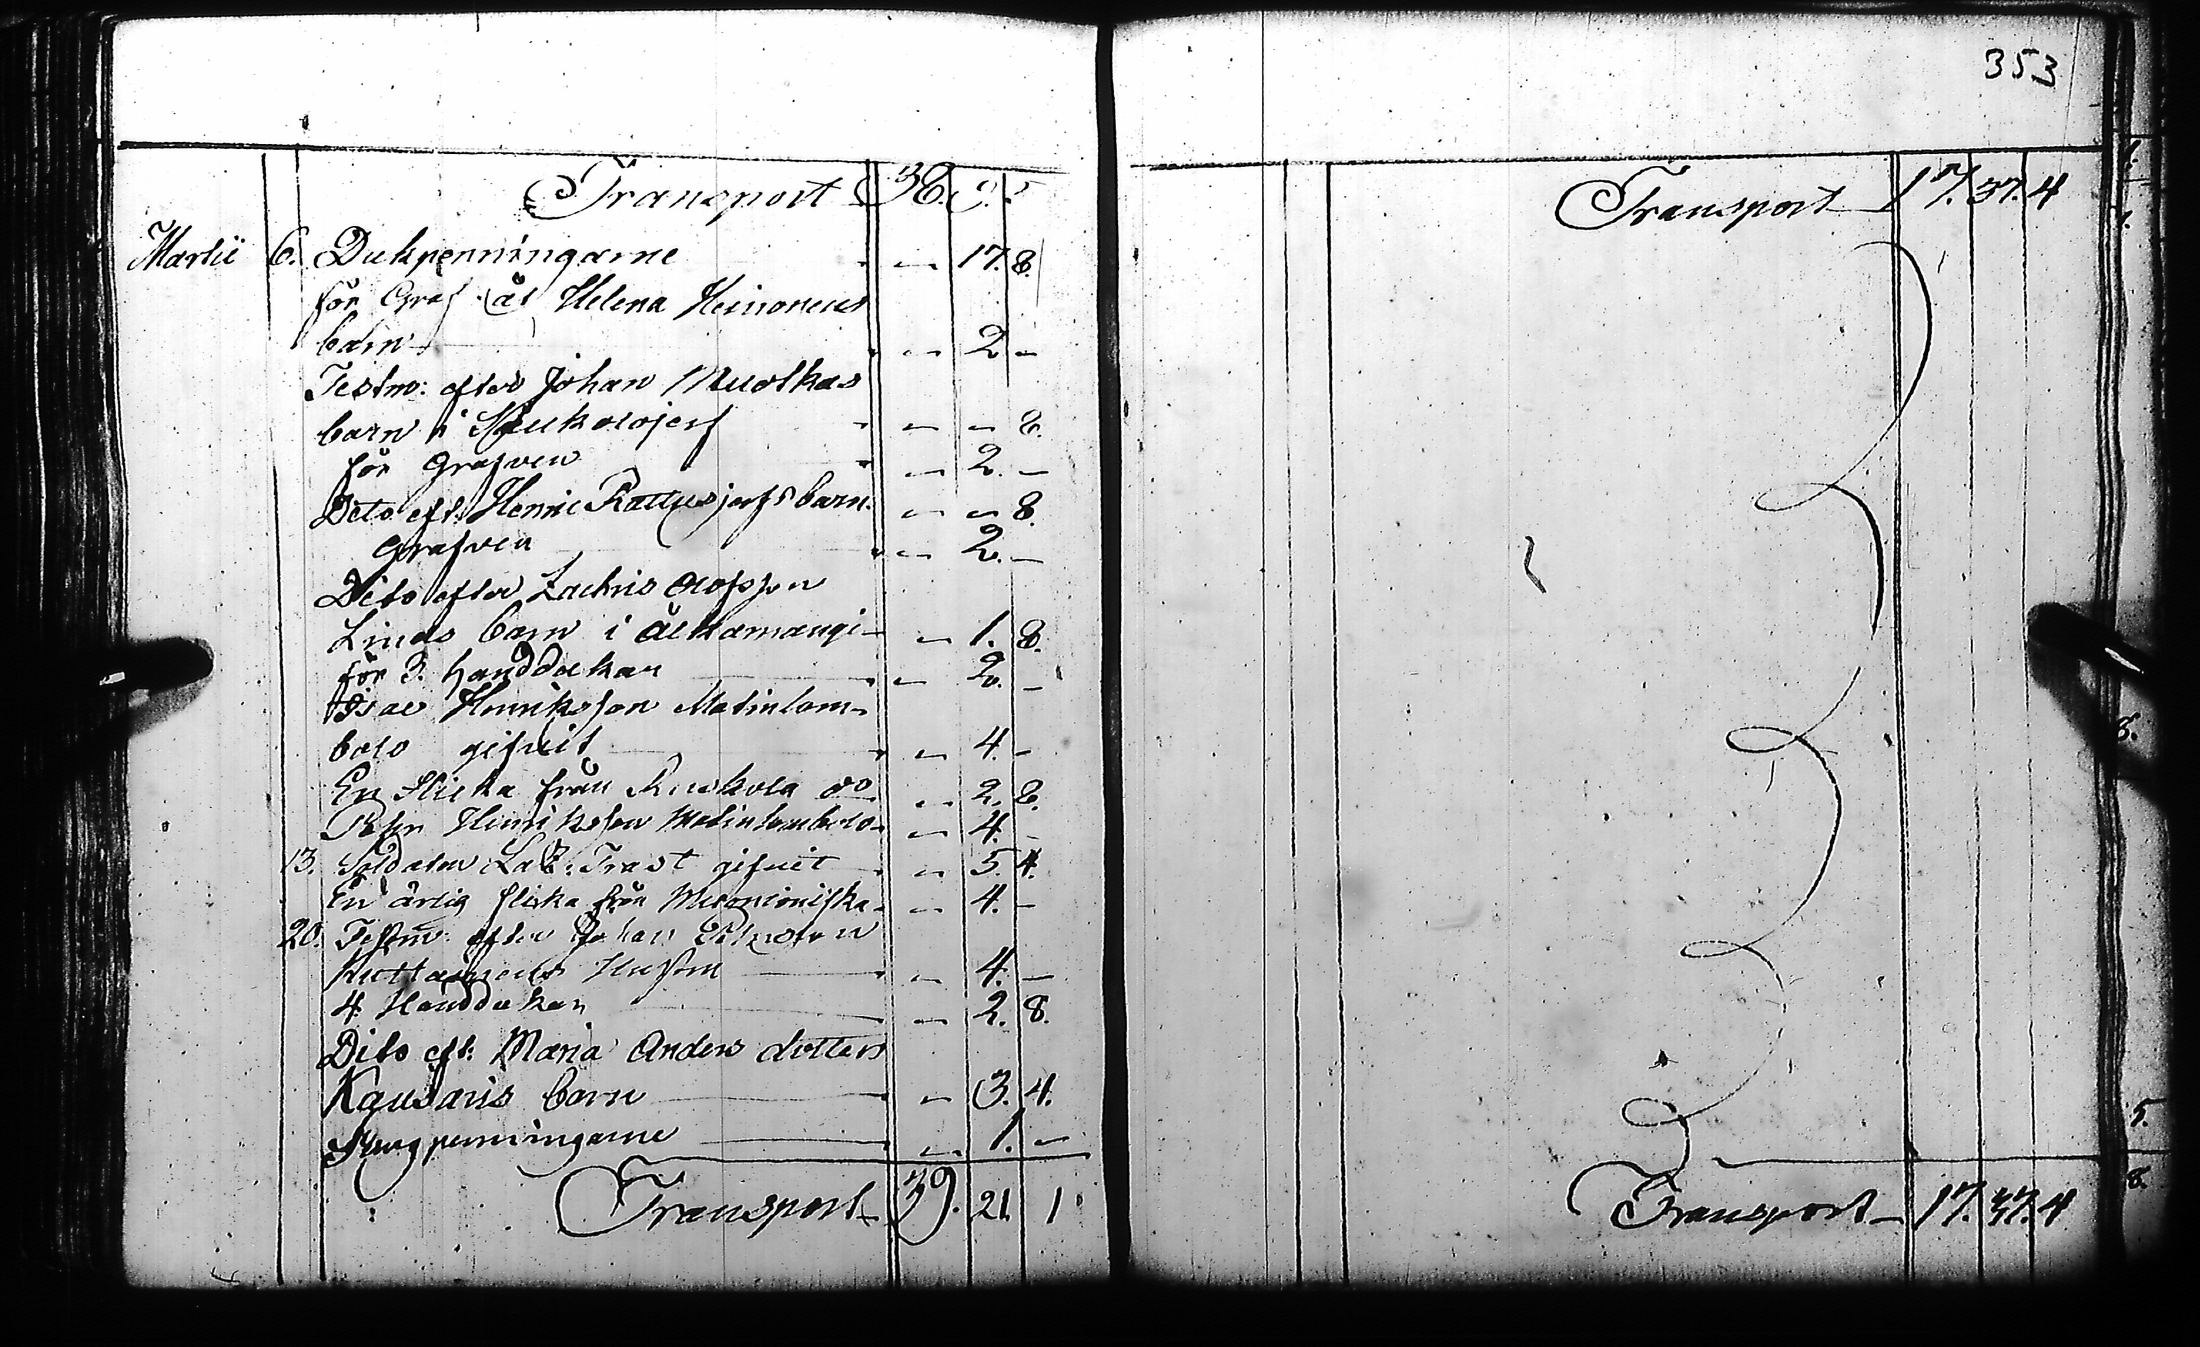 353
Transport 38. 2. 5
Martii 6. Dukpenningarne — 17. 8.
för Graf åt Helena Heinoneus
barn — 2. —
Testm: efter Johan Muotkas
barn i Kaukolojerf — — 8.
för Grafven — 2. —
Dito eft: Henric Rattusjerfs barn. — — 8.
Grafven — 2. —
Dito efter Zachris Olofsson
Linds barn i Alkamangi — 1. 8.
för 3. handdukar — 2. —
Isac Henriksson Matinlom-
bolo gifvit — 4. —
En flicka från Kuukola do — 2. 8.
Petter Henriksson Matinlombolo — 4. —
13. Soldaten La: Trast gifvit — 5. 4.
En ärlig flicka från Muonioniska — 4. —
20. Testm: efter Johan
Kuttainens Hustru — 4. —
4 Handdukar — 2. 8.
Dito eft: Maria Anders dotters
Kausaris barn — 3. 4.
Pungpenningarne — 1. —
Transport 39. 21. 1
Transport 17. 37. 4
Transport 17. 37. 4